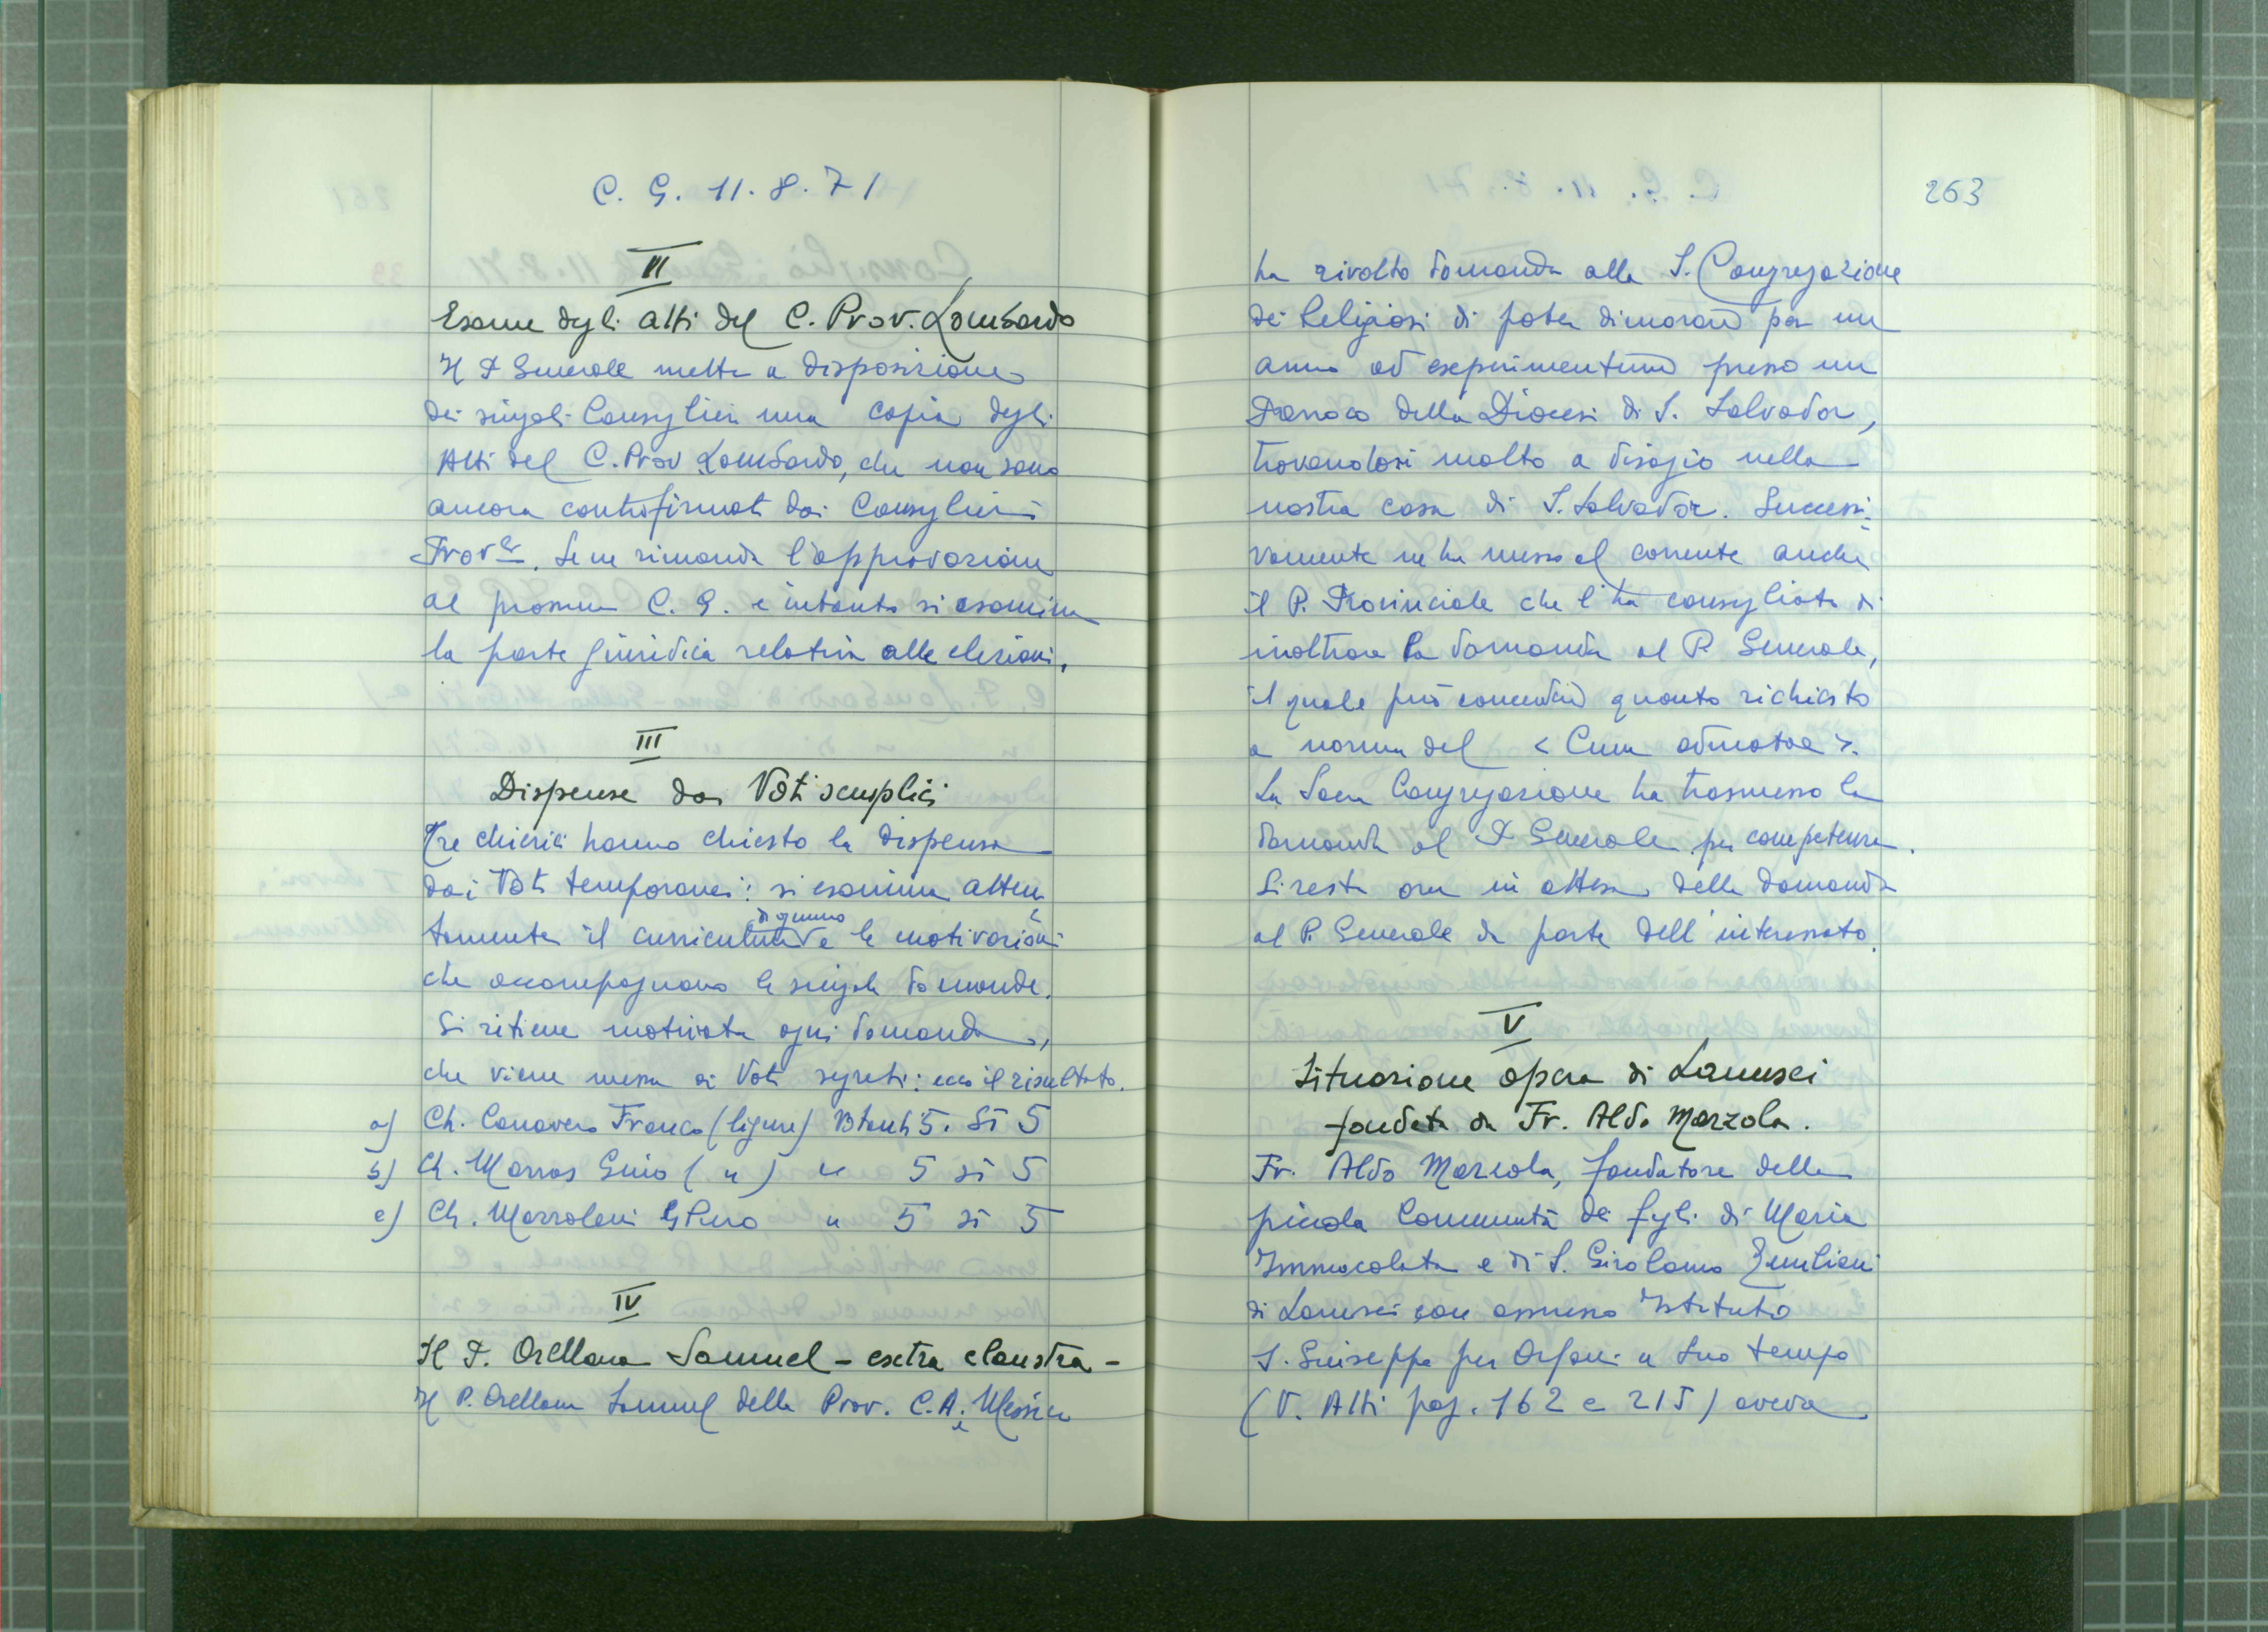 C. G. 11.8.71
II
Esame degli Atti del C. Prov. Lombardo
Il P. Generale mette a disposizione
dei singoli Consiglieri una copia degli
Atti del C. Prov Lombardo, che non sono
ancora controfirmati dai Consiglieri
Prov.li. Se ne rimanda l'approvazione
al prossimo C. G. e intanto si esamina
la parte giuridica relativa alle elezioni.
III
Dispense dai Voti semplici
Tre chierici hanno chiesto la dispensa
dai Voti temporanei: si esamina atten
tamente il curriculum di ognuno e le motivazioni
che accompagnano le singole domande.
Si ritiene motivata ogni domanda,
che viene messa ai Voti segreti: ecco il risultato.
a) Ch. Canavero Franco (ligure) Votanti 5. Si 5
b) Ch. Marras Gino ( " ) " 5 si 5
c) Ch. Mazzoleni Piero " 5 si 5
IV
Il P. Orellana Samuel - extra claustra -
Il P. Orellana Samuel della Prov. C.A. e Messico
263
ha rivolto domanda alla S. Congregazione
dei Religiosi di poter dimorare per un
anno ad experimentum presso un
Parroco della Diocesi di S. Salvador,
trovandosi molto a disagio nella
nostra casa di S. Salvador. Successi-
vamente ne ha messo al corrente anche
il P. Provinciale che l'ha consigliato di
inoltrare la domanda al P. Generale,
il quale può concedere quanto richiesto
a norma del < Cum admotae >.
La Sacra Congregazione ha trasmesso la
domanda al P. Generale per competenza.
Si resta ora in attesa della domanda
al P. Generale da parte dell'interessato.
V
Situazione opera di Lanusei
fondata da Fr. Aldo Marzola.
Fr. Aldo Marzola, fondatore della
piccola Comunità dei figli di Maria
Immacolata e di S. Girolamo Emiliani
di Lanusei con annesso Istituto
S. Giuseppe per Orfani a suo tempo
(V. Atti pag. 162 e 215) aveva